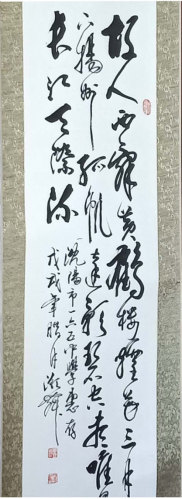 故人西辭黃鶴樓煙花三月
下揚州孤帆遠影碧空盡唯見
長江天際流
瀋陽市一六五中學惠存
戊戌年腊月